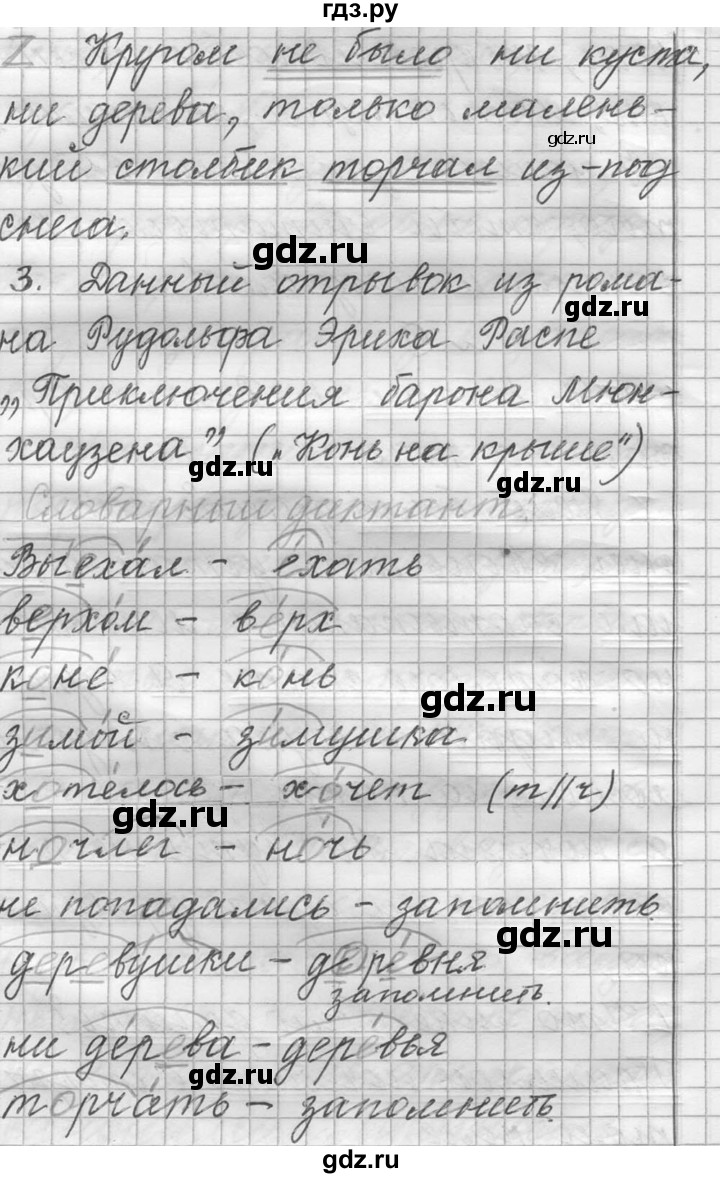 гдз.ру
Кругом не было ни куста,
ни дерева, только малень-
gdz.ru
кий столбик торчал из-под
снега.
gdz.ru
3. Данный отрывок из рома-
gdz.ru
на Рудольфа Эриха Распе
„Приключения барона Мюн-
хаузена” („Конь на крыше”)
gdz.ru
gdz.ru
Словарный диктант.
Выехал – е́хать
верхо́м – ве́рх
коне́ – ко́нь
gdz.ru
зимо́й – зи́мушка
хоте́лось – хо́чет (т//ч)
gdz.ru
ночлег – но́чь
не попадались – запомнить.
gdz.ru
деревушки – дере́вня
запомнить.
ни де́рева – дере́вья
gdz.ru
торча́ть – запомнить.
gdz.ru